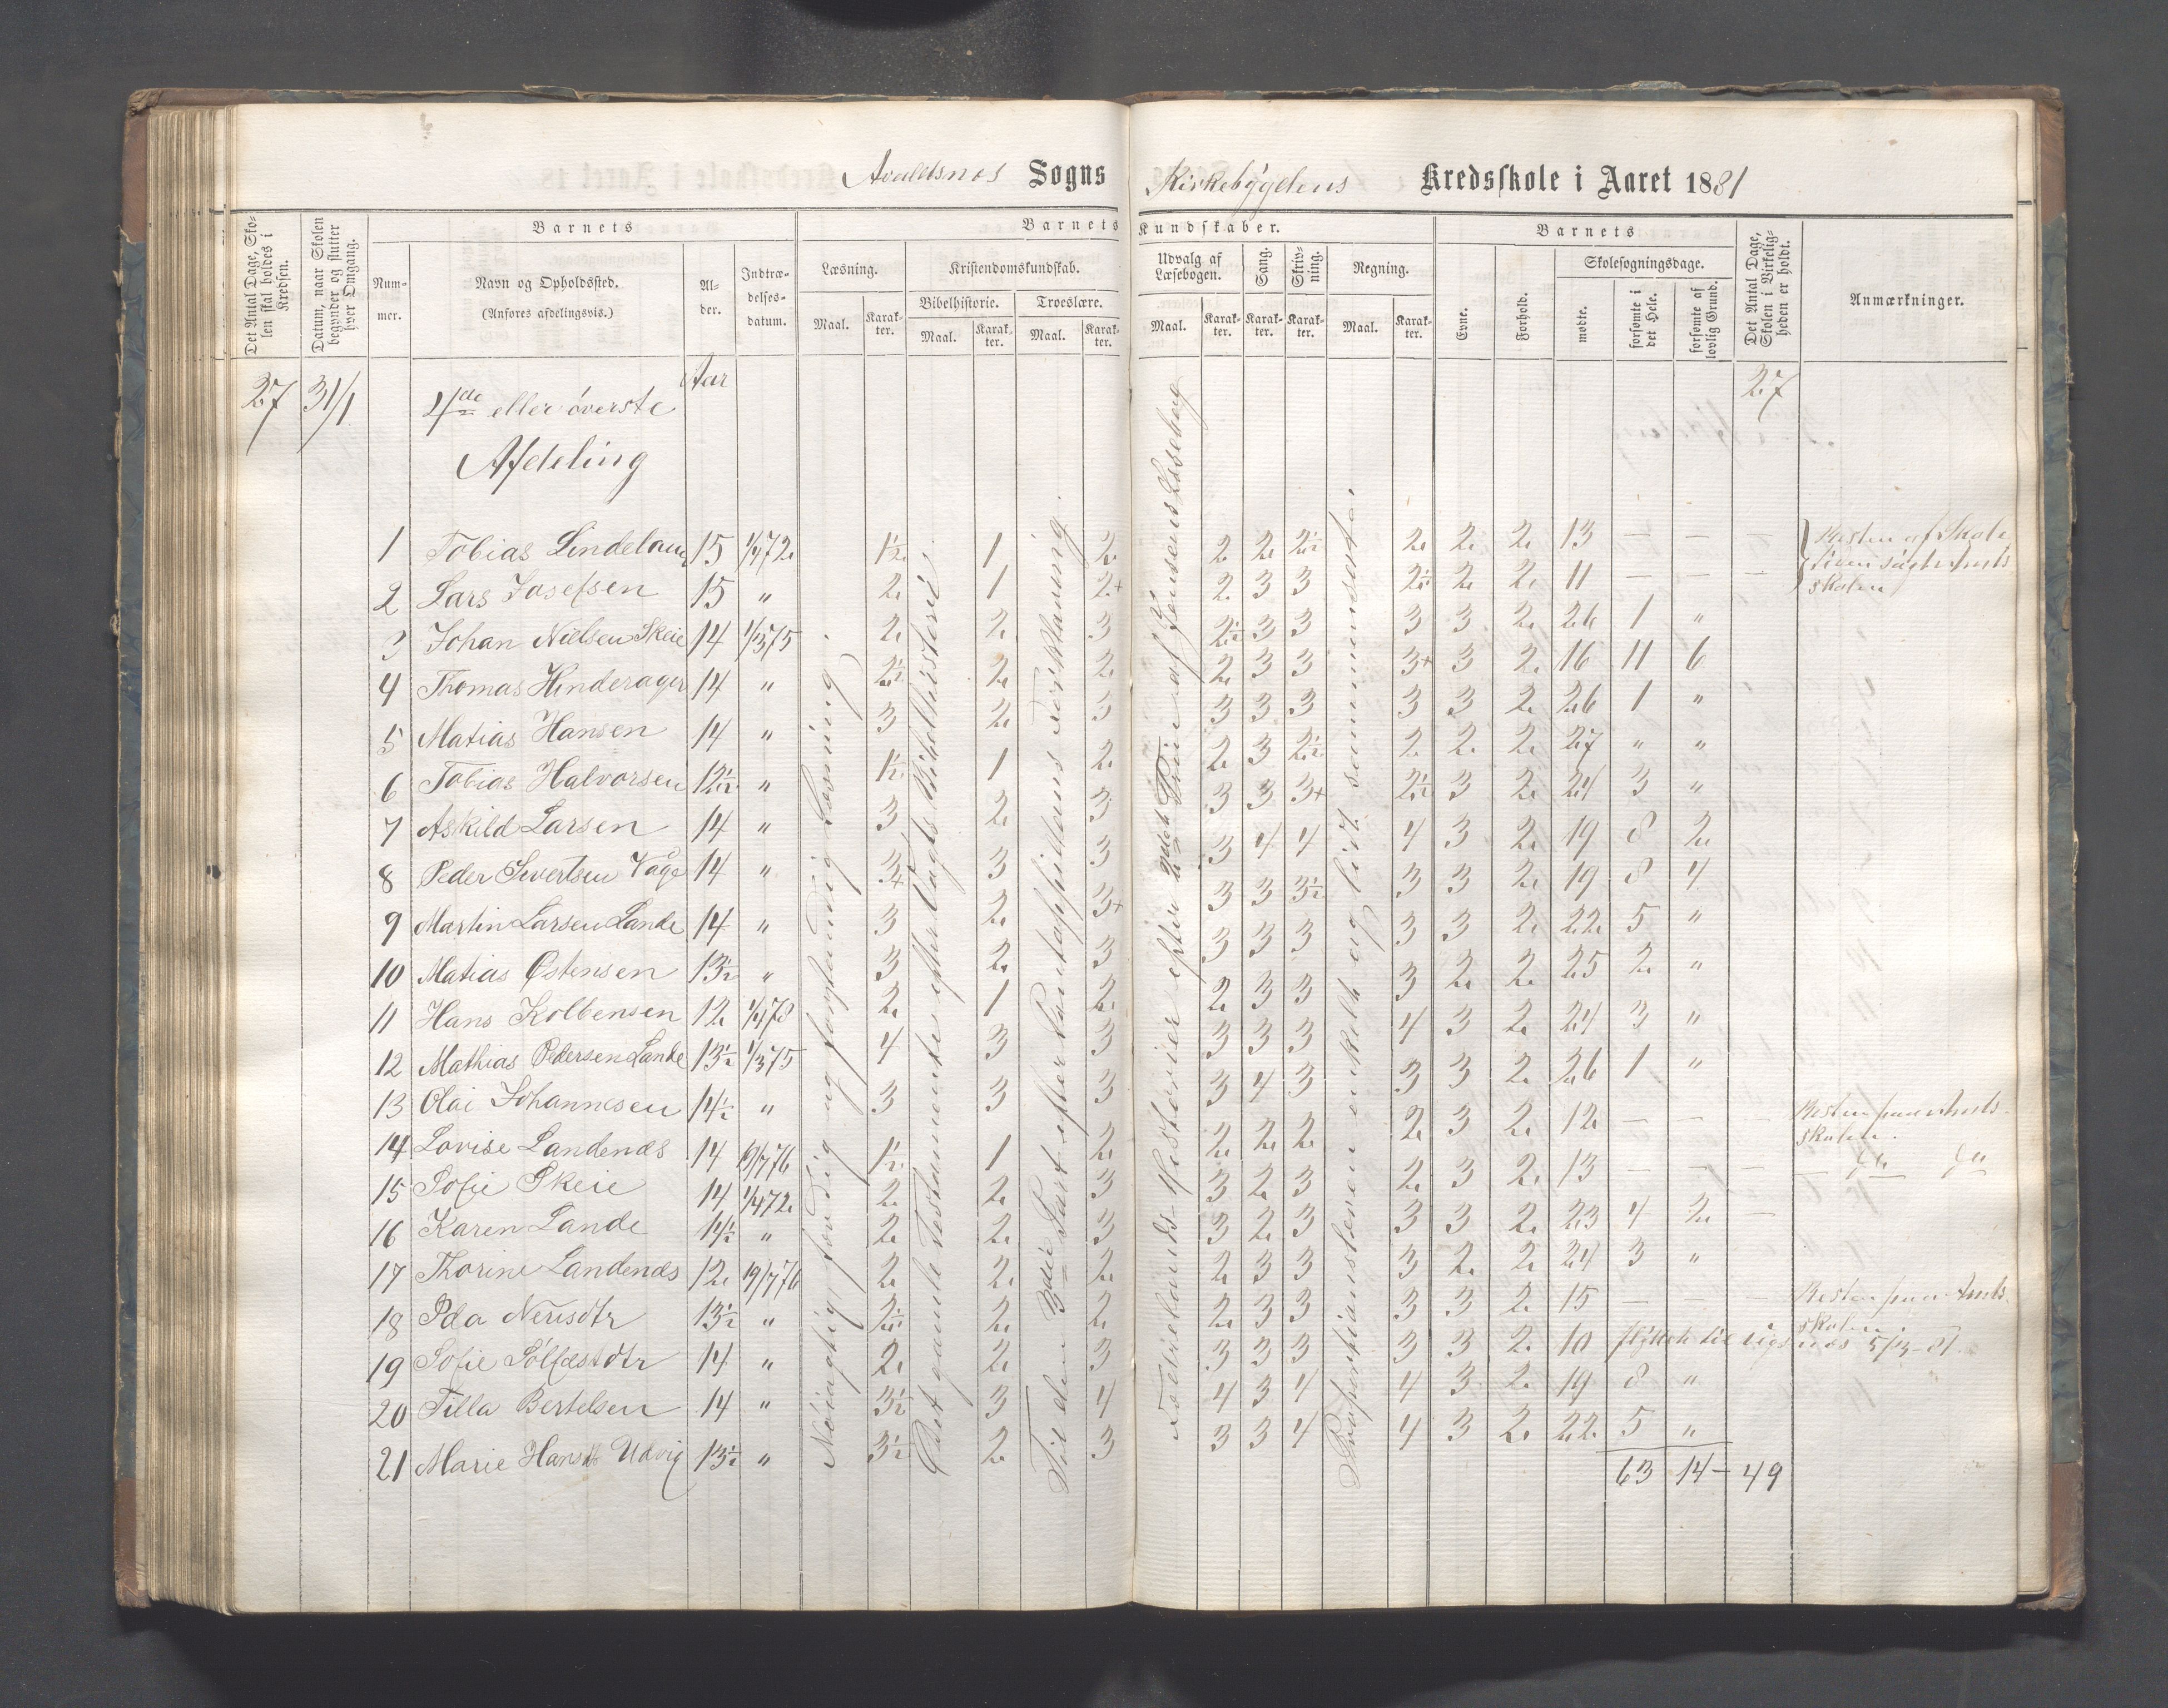 Avaldsnes Sogns Kirkebygdens Kredsskole i Aaret 1881
Det Antal Dage, Skolen skal holdes i Kredsen.
Datum, naar Skolen begynder og slutter hver Omgang.
Barnets
Num-
mer.
Navn og Opholdssted.
(Anføres afdelingsvis.)
Al-
der.
Indtræ-
delses-
datum.
Barnets Kundskaber.
Læsning.
Maal.
Karak-
ter.
Kristendomskundskab.
Bibelhistorie.
Maal.
Karak-
ter.
Troeslære.
Maal.
Karak-
ter.
Udvalg af
Læsebogen.
Maal.
Karak-
ter.
Sang.
Karak-
ter.
Skriv-
ning.
Karak-
ter.
Regning.
Maal.
Karak-
ter.
Barnets
Evne.
Forhold.
Skolesøgningsdage.
mødte.
forsømte i
det Hele.
forsømte af
lovlig Grund.
Det Antal Dage,
Skolen i Virkelig-
heden er holdt.
Anmærkninger.
27 31/1 4de eller øverste Aar 27
Afdeling
1 Tobias Lindeland 15 1/4 72 1½ 1 2 2 2 2½ 2 2 2 13 — — — Resten af Skole
2 Lars Josefsen 15 " 2 1 2+ 2 3 3 2½ 2 2 11 — — — skolen
3 Johan Nielsen Skeie 14 1/3 75 2 2 3 2½ 3 3 3 3 2 26 1 "
4 Thomas Hinderager 14 " 2½ 2 2 2 3 3 3+ 3 2 16 11 6
5 Matias Hansen 14 " 3 2 3 3 3 3 3 3 2 26 1 "
6 Tobias Halvorsen 12½ " 1½ 1 2 2 3 2½ 2 2 2 27 " "
7 Askild Larsen 14 " 3 2 3 3 3 3+ 2½ 3 2 24 3 "
8 Peder Sivertsen Våge 14 " 3+ 3 3 3 4 4 4 3 2 19 8 2
9 Martin Larsen Lande 14 " 3 2 3+ 3 3 3½ 3 3 2 19 8 4
10 Matias Østensen 13½ " 3 2 3 3 3 3 3 3 2 22 5 "
11 Hans Kolbensen 12 1/4 78 2 1 2 2 3 3 3 2 2 25 2 "
12 Mathias Pedersen Lande 13½ 1/3 75 4 3 3 3 3 3 4 3 2 24 3 "
13 Olai Johannesen 14½ " 3 3 3 3 4 3 3 3 2 26 1 "
14 Lovise Landenæs 14 19/7 76 1½ 1 2 2 2 2 2 3 2 12 — — Resten paa Amts-
skolen.
15 Sofie Skeie 14 1/4 72 2 2 3 3 2 3 2 3 2 13 — — —
16 Karen Lande 14½ " 2 2 3 3 2 3 3 3 2 23 4 2 —
17 Thorine Landenæs 12 19/7 76 2 2 2 2 3 3 3 2 2 24 3 "
18 Ida Nerisdtr 13½ " 2½ 2 2 2 3 3 3 3 2 15 — — — Resten paa Amts-
skolen.
19 Sofie Solfæstdtr 14 " 2 2 3 3 3 3 3 3 2 10 flyttet til 5/3-81.
20 Tilla Bertelsen 14 " 3½ 3 4 4 3 4 4 3 2 19 8 "
21 Marie Hansdtr Udvig 13½ " 3½ 2 3 3 3 4 4 3 2 22 5 "
63 14 — 49
Nøiagtig for Sig og forstaaelig Læsning.
Det gamle Testamente efter Vogts Bibelhistorie.
Til den 3die Part efter Pontoppidans Forklaring.
Fædrelands Historier efter 2det Trin af Jensens Læsebog
Proportionslæren enkelt og lidt sammensat.